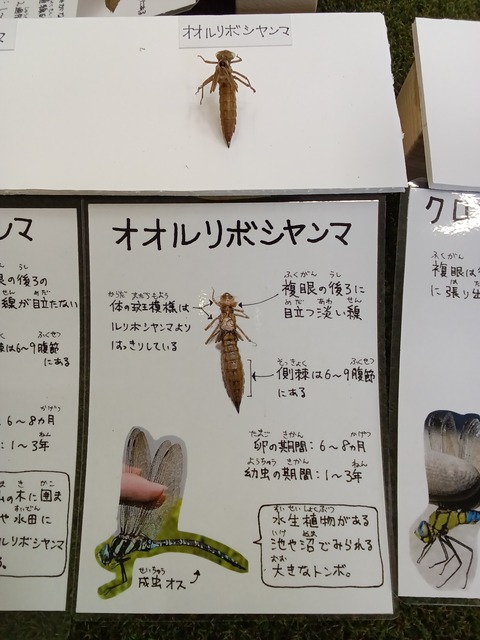 マ
オオルリボシヤンマ
ンマ
の後ろの
線が目立たない
は6～9腹節
にある
6～8カ月
：1～3年
の木に囲ま
や水田に
ルリボシヤンマ
オオルリボシヤンマ
からだ まだらもよう
体の斑模様は
ルリボシヤンマより
はっきりしている
ふくがん うし
複眼の後ろに
めだ あわ せん
目立つ淡い線
そっきょく ふくせつ
側棘は6～9腹節
にある
たまご きかん かげつ
卵の期間：6～8カ月
ようちゅう きかん ねん
幼虫の期間：1～3年
すいせいしょくぶつ
水生植物がある
いけ ぬま
池や沼でみられる
おお
大きなトンボ。
せいちゅう
成虫オス
クロ
ふくがん
複眼は
に張り出